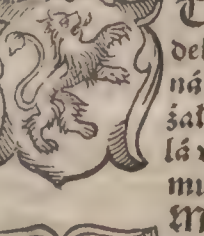 T
del
ná
žal
lá v
mu
M